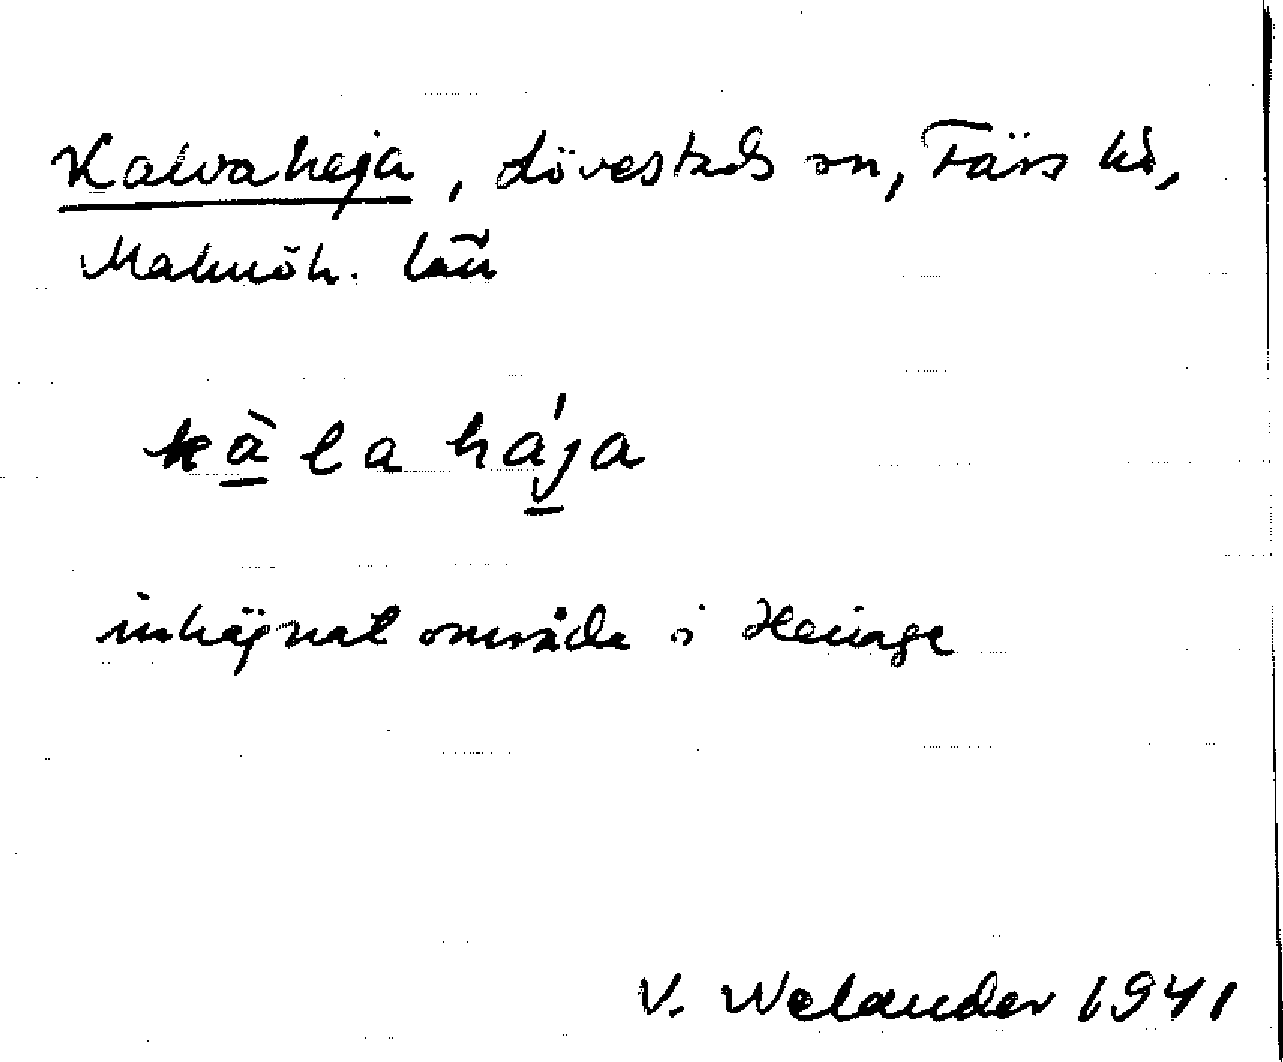 Kalvaheja, Lövestads sn, Färs hd,
Malmöh. län
kàla hája
inhägnat område i Heinge
V. Welander 1941